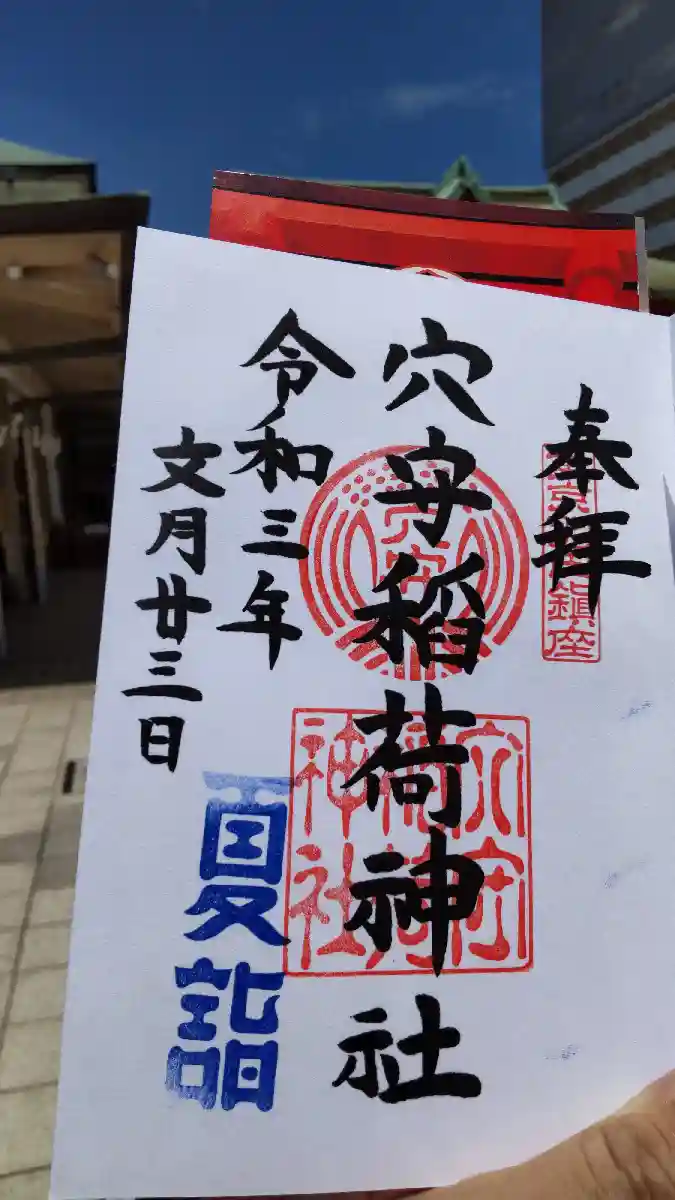 奉拝
鎮座
穴守稲荷神社
穴守
稲荷
神社
令和三年
文月廿三日
夏詣